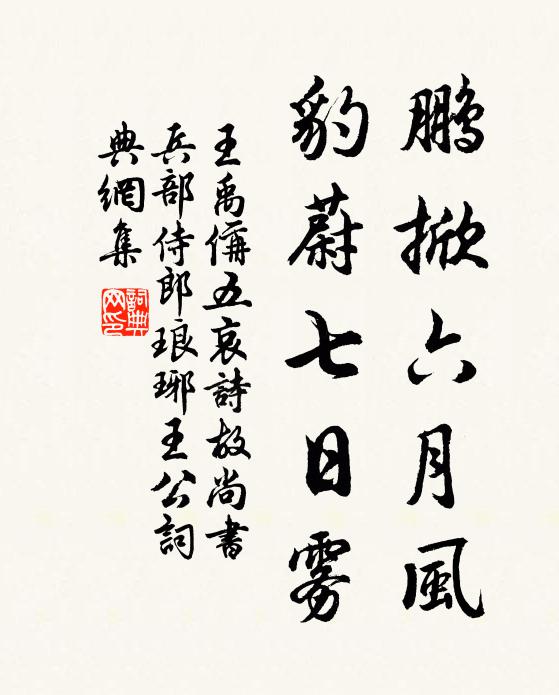 鵬掀六月風
豹蔚七日雾
王禹偁五哀詩故尚書
兵部侍郎琅琊王公詞
典網集
詞典網印